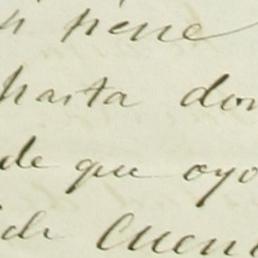 tiene
hasta don
de que oyo
de Cuen